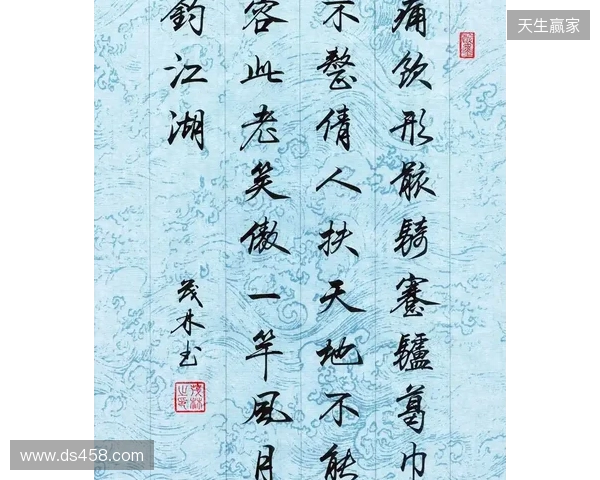 痛飲形骸騎蹇驢葛巾
不整倩人扶天地不能
容此老笑傲一竿風月
釣江湖
茂林书
天生赢家
www.ds458.com